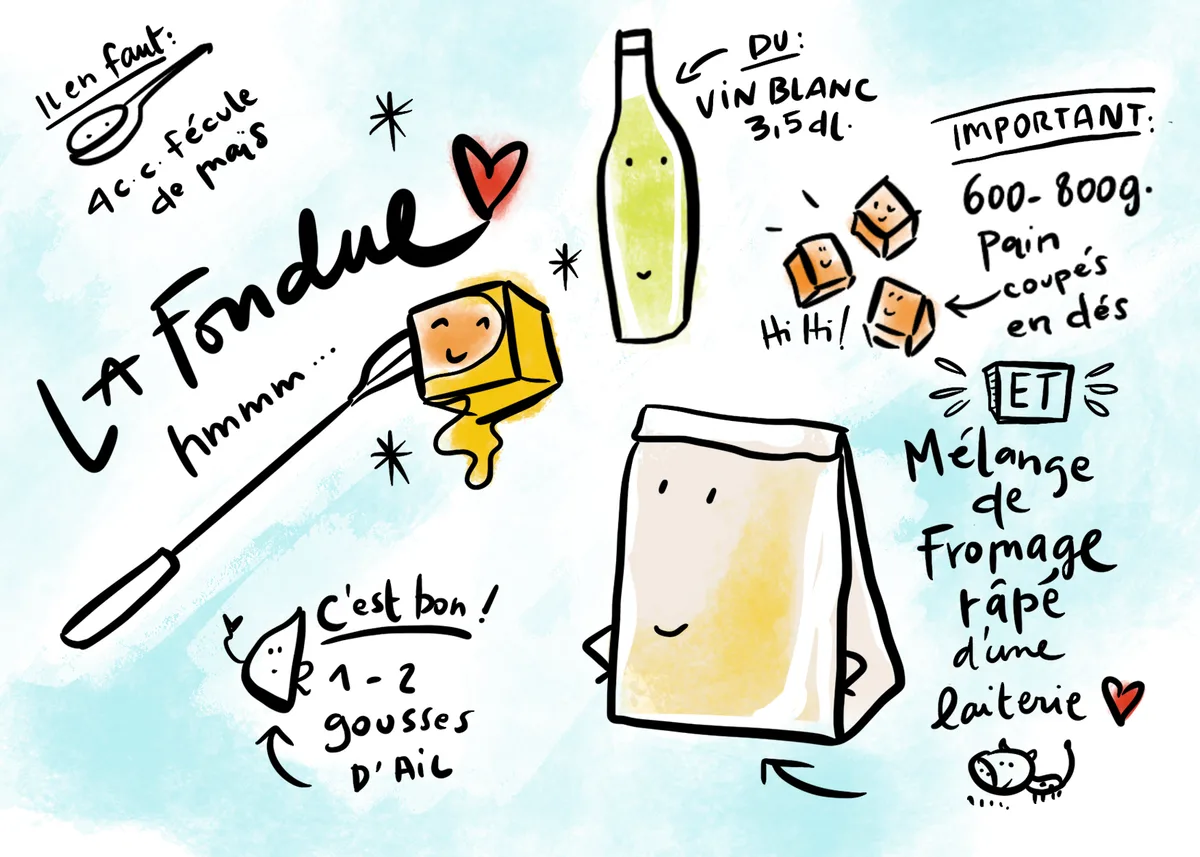 Il en faut:
4 c.c. fécule
de maïs
LA Fondue
hmmm...
DU:
VIN BLANC
3,5 dl.
IMPORTANT:
600-800g.
Pain
coupés
en dés
Hi Hi!
ET
Mélange
de
Fromage
râpé
d'une
laiterie
C'est bon!
1-2
gousses
D'AIL